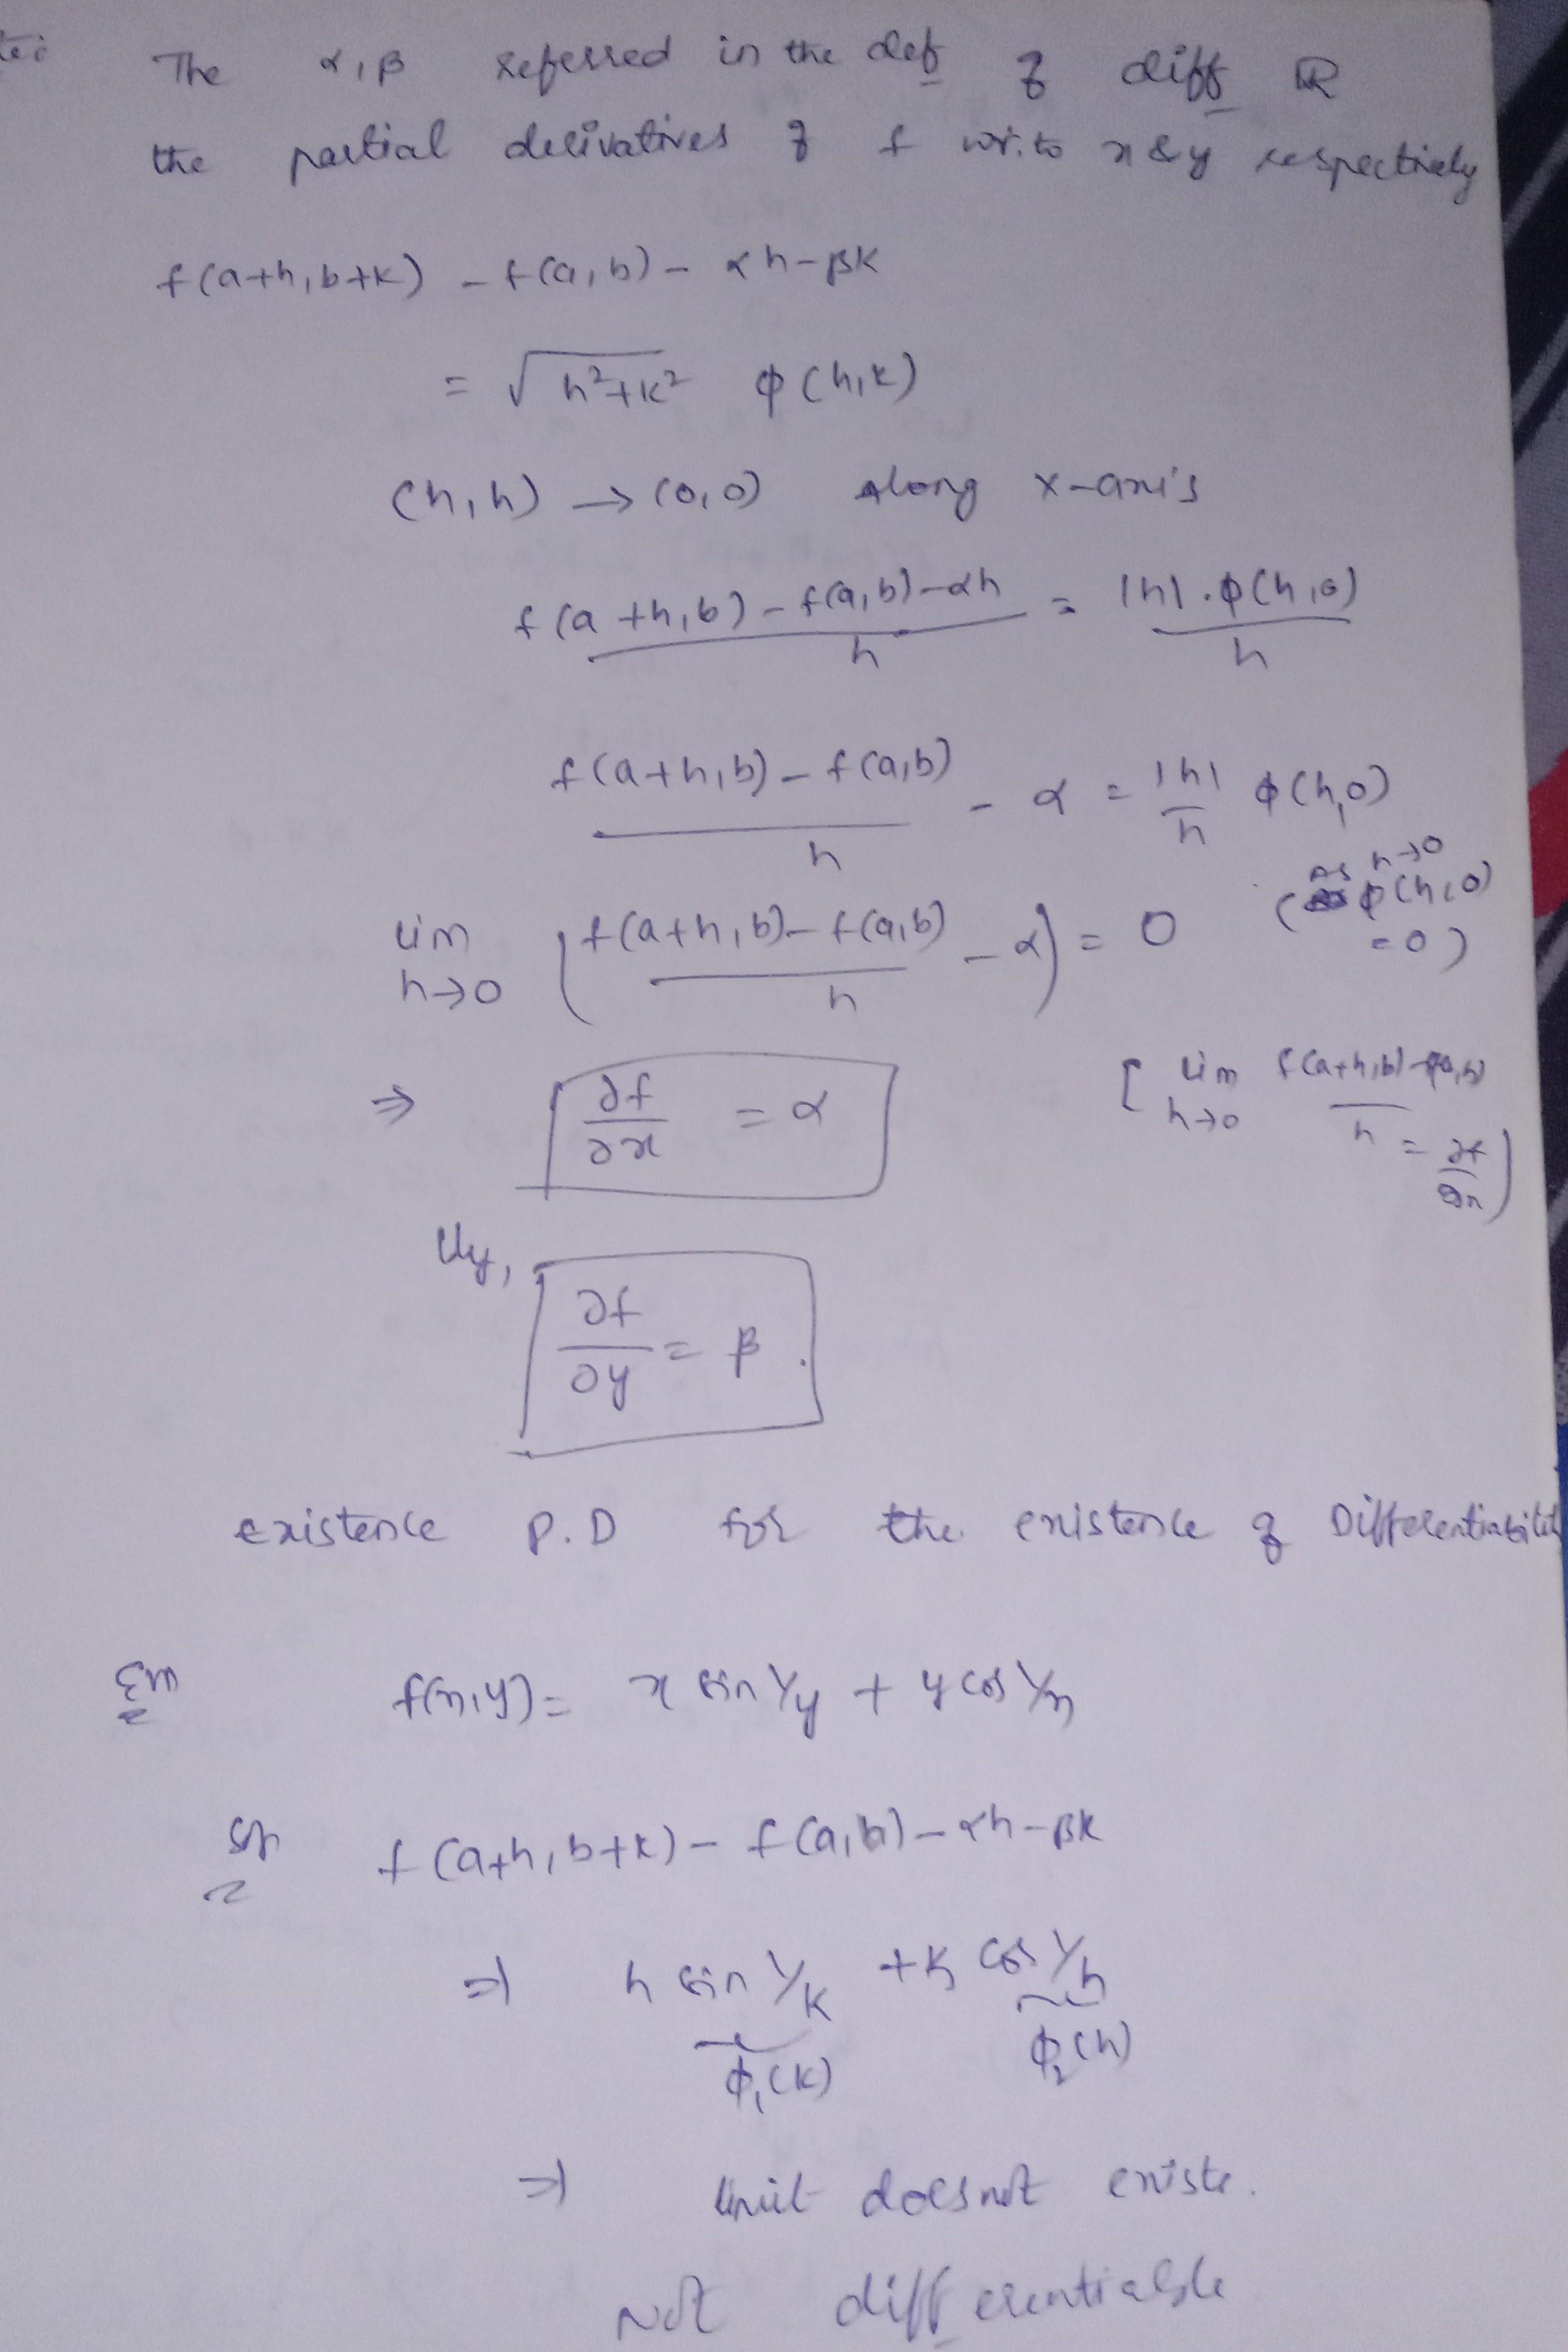 The α, β referred in the def of diff R
the partial derivatives of f w.r.to x & y respectively
f(a+h, b+k) - f(a, b) - αh - βk
= √h²+k² ϕ(h, k)
(h, h) → (0, 0) Along x-axis
f(a+h, b) - f(a, b) - αh / h = |h|. ϕ(h, 0) / h
f(a+h, b) - f(a, b) / h - α = |h| / h ϕ(h, 0)
lim h→0 ( f(a+h, b) - f(a, b) / h - α ) = 0 (as h→0 ϕ(h, 0) = 0)
⇒ ∂f/∂x = α [ lim h→0 f(a+h, b) - f(a, b) / h = ∂f/∂x )
lly,
∂f/∂y = β.
existence P.D for the existence of Differentiabilit
Ex f(x, y) = x sin 1/y + y cos 1/x
f(a+h, b+k) - f(a, b) - αh - βk
⇒ h sin 1/k + k cos 1/h
ϕ₁(k) ϕ₂(h)
⇒ limit does not exists.
Not differentiable